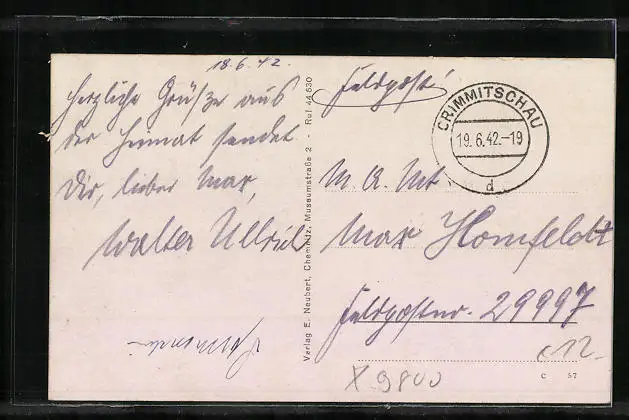 18.6.42.
Herzliche Grüße aus
der Heimat sendet
Dir, lieber Max,
Walter Ullrich
Verlag E. Neubert, Chemnitz, Museumstraße 2 - Ruf 44 630
Feldpost!
CRIMMITSCHAU
19.6.42.-19
d
M. A. Mt
Max Homfeldt
Feldpostnr. 29997
12.-
X 9800
C 57